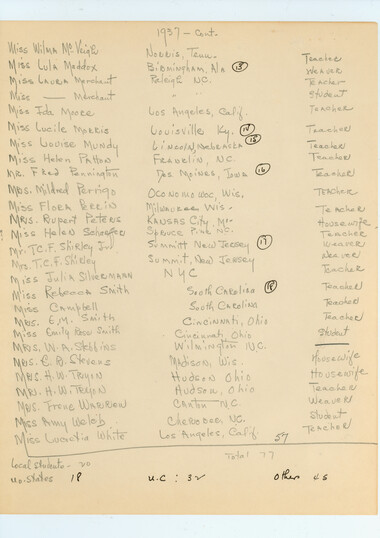 1937 - Cont.
Miss Wilma McVeigh Norris, Tenn. Teacher
Miss Lula Maddox Birmingham, Ala (13) Weaver
Miss Laura Merchant Raleigh NC. Teacher
Miss — Merchant " " Student
Miss Ida Moore Los Angeles, Calif. Teacher
Miss Lucile Morris Louisville Ky. (14) Teacher
Miss Louise Mundy Lincoln, Nebraska (15) Teacher
Miss Helen Patton Franklin, NC. Teacher
Mr. Fred Pennington Des Moines, Iowa (16) Teacher
Mrs. Mildred Perrigo Oconomowoc, Wis. Teacher
Miss Flora Perrin Milwaukee Wis. Teacher
Mrs. Rupert Peters Kansas City, Mo. Housewife
Miss Helen Schaefer Spruce Pine NC. Teacher
Mr. T.C.F. Shirley Jr Summitt New Jersey (17) Weaver
Mrs. T.C.F. Shirley Summit, New Jersey Weaver
Miss Julia Silvermann NYC Teacher
Miss Rebecca Smith South Carolina (18) Teacher
Miss Campbell South Carolina Teacher
Mrs. E.M. Smith Cincinnati, Ohio Teacher
Miss Emily Rose Smith Cincinnati, Ohio Student
Mrs. W.A. Stebbins Wilmington NC. —
Mrs. E.B. Stevens Madison, Wis. Housewife
Mrs. H.W. Tryon Hudson Ohio Housewife
Mr. H.W. Tryon Hudson, Ohio Teacher
Mrs. Irene Warren Canton NC Weaver
Miss Amy Webb Cherokee, NC. Student
Miss Lucretia White Los Angeles, Calif. 57 Teacher
Local students - 20 Total 77
No. States 18 U.C: 32 Other 45